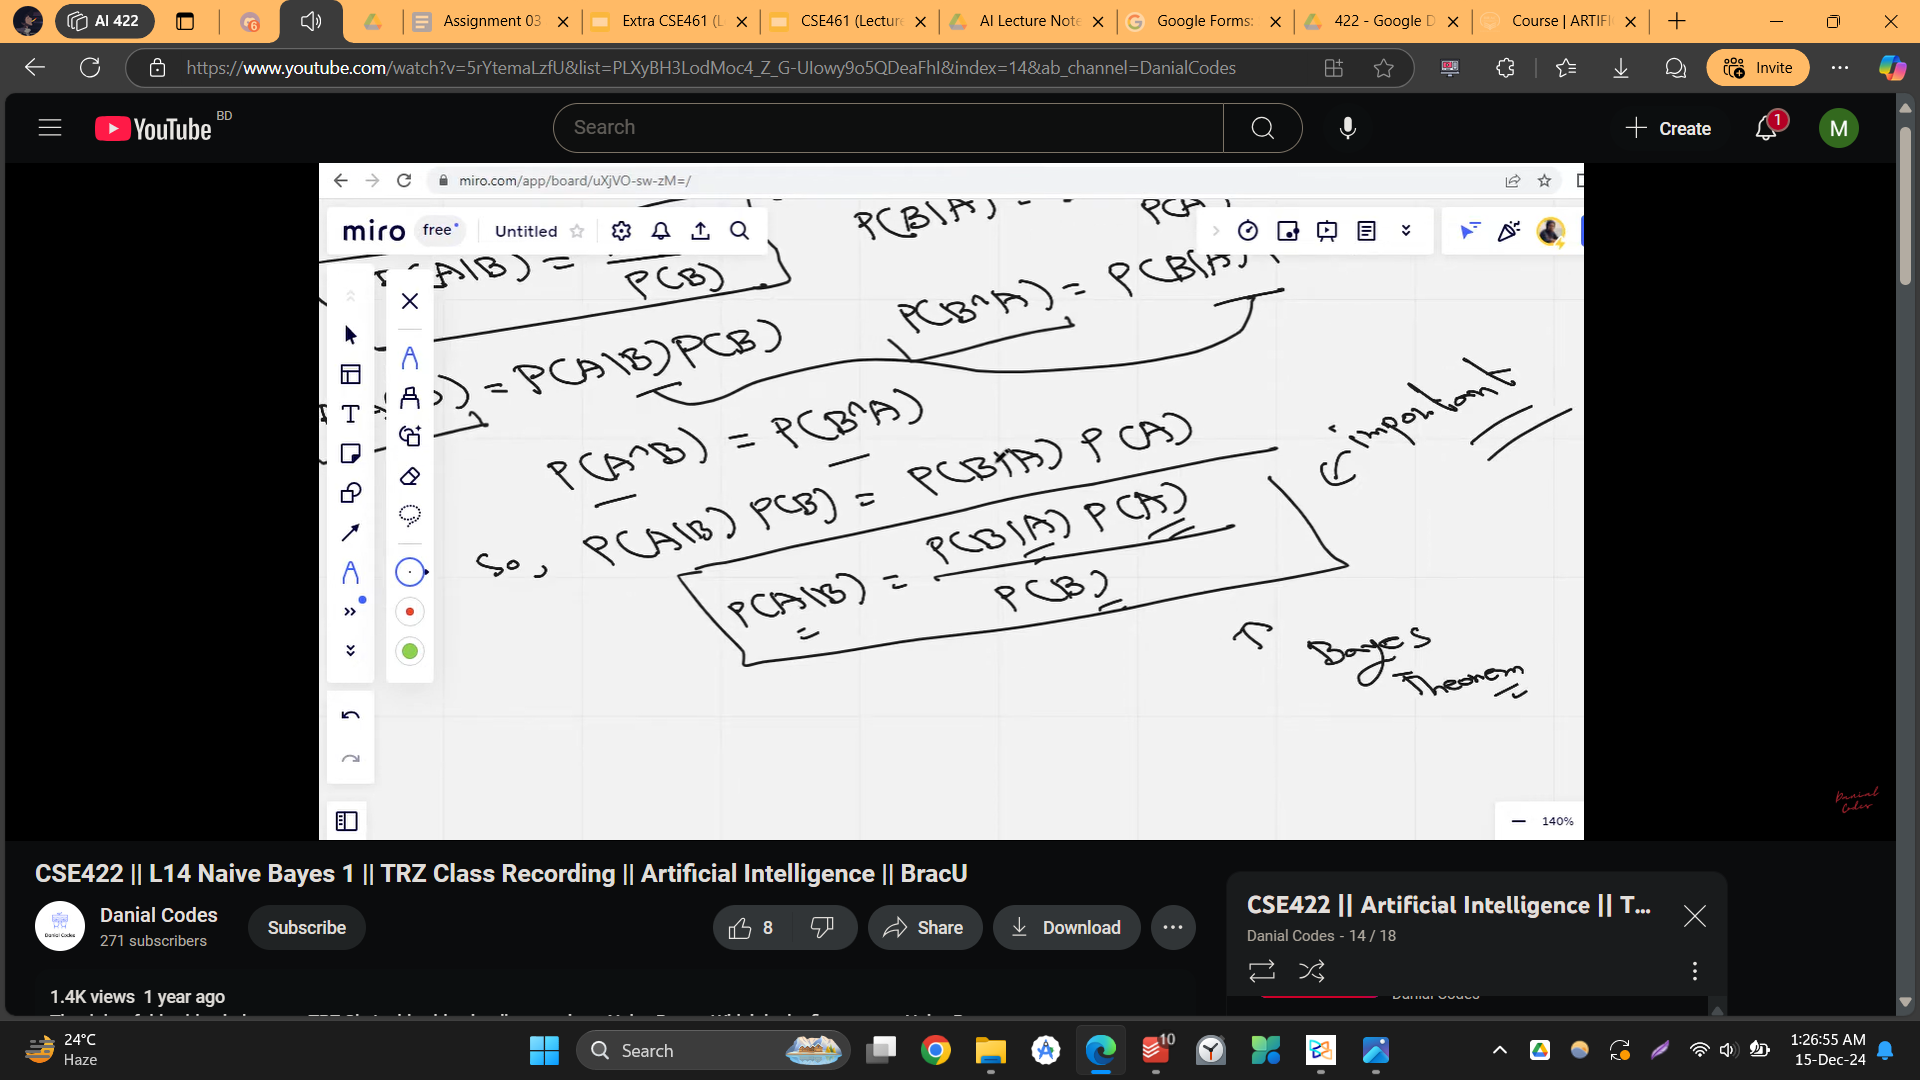 AI 422
6
Assignment 03
Extra CSE461 (L
CSE461 (Lecture
AI Lecture Note
Google Forms:
422 - Google D
Course | ARTIFI
https://www.youtube.com/watch?v=5rYtemaLzfU&list=PLXyBH3LodMoc4_Z_G-UIowy9o5QDeaFhI&index=14&ab_channel=DanialCodes
Invite
YouTube BD
Search
Create
1
M
miro.com/app/board/uXjVO-sw-zM=/
miro free Untitled
P(B|A) =
P(A)
P(A|B) =
P(B)
P(B^A) = P(B|A)
= P(A|B)P(B)
P(A^B) = P(B^A)
So, P(A|B) P(B) = P(B|A) P(A)
important
P(A|B) = P(B|A) P(A)
P(B)
Bayes
Theorem
140%
Danial
Codes
CSE422 || L14 Naive Bayes 1 || TRZ Class Recording || Artificial Intelligence || BracU
Danial Codes
271 subscribers
Subscribe
8
Share
Download
CSE422 || Artificial Intelligence || T...
Danial Codes - 14 / 18
Danial Codes
1.4K views 1 year ago
24°C
Haze
Search
10
1:26:55 AM
15-Dec-24